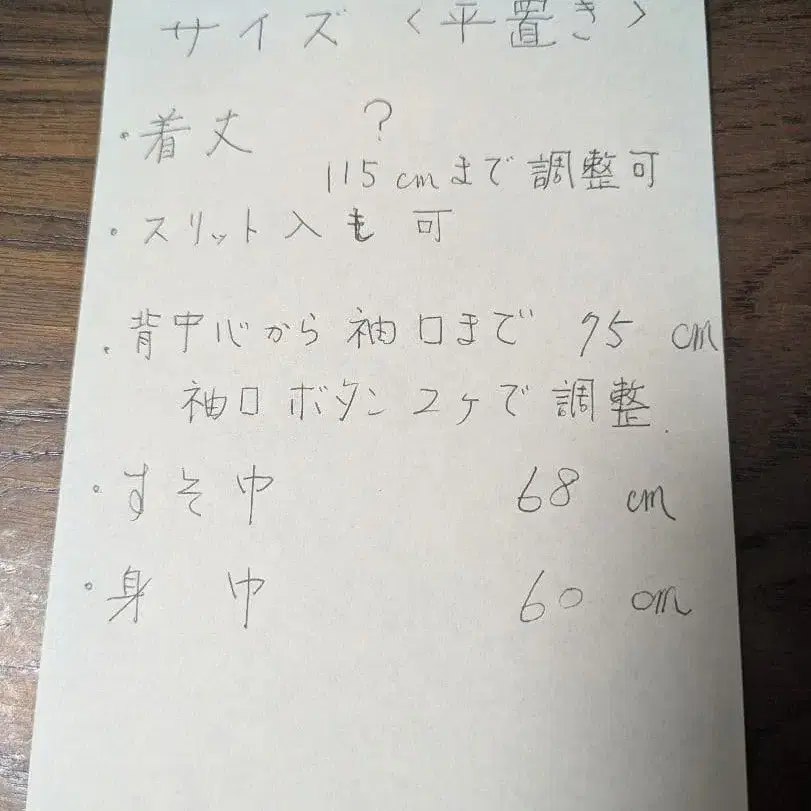 サイズ 〈平置き〉
・着丈 ?
115cmまで調整可
・スリット入も可
・背中心から袖口まで 75 cm
袖口ボタン2ケで調整.
・すそ巾 68 cm
・身巾 60 cm